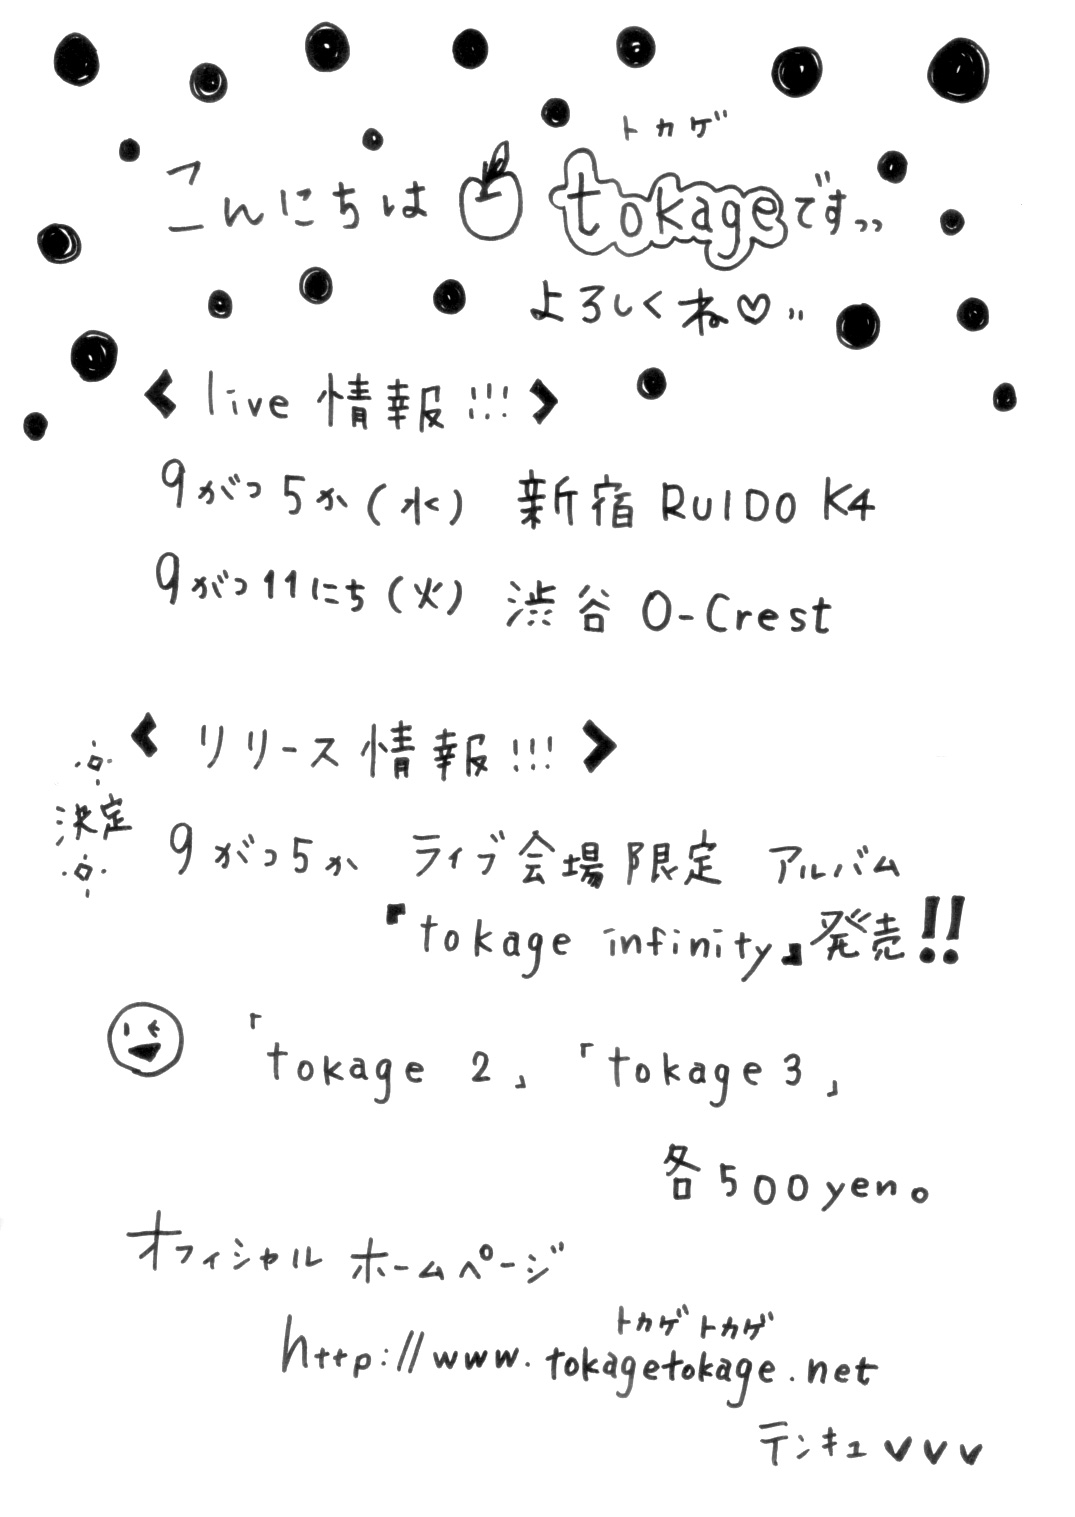 トカゲ
こんにちは tokageです,,
よろしくね♡,,
< live 情報!!! >
9がつ5か(水) 新宿 RUIDO K4
9がつ11にち(火) 渋谷 O-Crest
< リリース情報!!! >
決定
9がつ5か ライブ会場限定 アルバム
『tokage infinity』発売!!
「tokage 2」「tokage 3」
各500yen。
オフィシャル ホームページ
トカゲトカゲ
http://www.tokagetokage.net
テンキュ♥♥♥